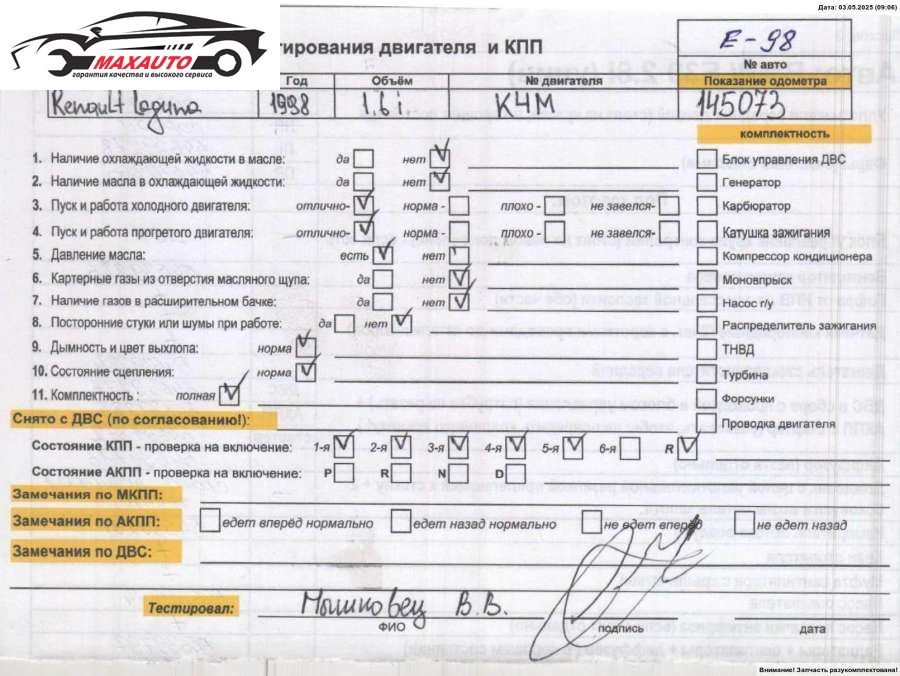 Дата: 03.05.2025 (09:06)
MAXAUTO
гарантия качества и высокого сервиса
тирования двигателя и КПП
E-98
№ авто
Год Объём № двигателя Показание одометра
Renault Laguna 1998 1.6 i K4M 145073
комплектность
1. Наличие охлаждающей жидкости в масле: да нет Блок управления ДВС
2. Наличие масла в охлаждающей жидкости: да нет Генератор
3. Пуск и работа холодного двигателя: отлично- норма - плохо - не завелся- Карбюратор
4. Пуск и работа прогретого двигателя: отлично- норма - плохо - не завелся- Катушка зажигания
5. Давление масла: есть нет Компрессор кондиционера
6. Картерные газы из отверстия масляного щупа: да нет Моновпрыск
7. Наличие газов в расширительном бачке: да нет Насос г/у
8. Посторонние стуки или шумы при работе: да нет Распределитель зажигания
9. Дымность и цвет выхлопа: норма ТНВД
10. Состояние сцепления: норма Турбина
11. Комплектность : полная Форсунки
Снято с ДВС (по согласованию!): Проводка двигателя
Состояние КПП - проверка на включение: 1-я 2-я 3-я 4-я 5-я 6-я R
Состояние АКПП - проверка на включение: P R N D
Замечания по МКПП:
Замечания по АКПП: едет вперёд нормально едет назад нормально не едет вперёд не едет назад
Замечания по ДВС:
Тестировал: Мышковец В.В.
ФИО подпись дата
Внимание! Запчасть разукомплектована!